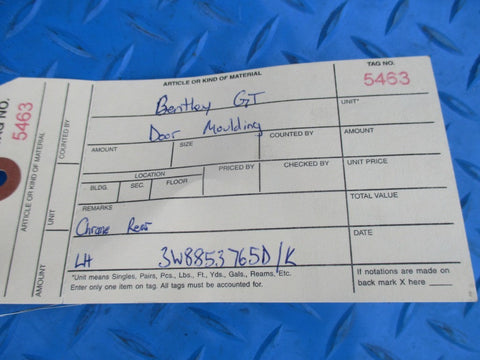 TAG NO.
5463
ARTICLE OR KIND OF MATERIAL
COUNTED BY
UNIT
AMOUNT
ARTICLE OR KIND OF MATERIAL
Bentley GT
TAG NO.
5463
Door Moulding
UNIT*
AMOUNT
SIZE
COUNTED BY
AMOUNT
LOCATION
PRICED BY
CHECKED BY
UNIT PRICE
BLDG.
SEC.
FLOOR
REMARKS
TOTAL VALUE
Chrome Rear
DATE
LH 3W8853765D/K
*Unit means Singles, Pairs, Pcs., Lbs., Ft., Yds., Gals., Reams, Etc.
Enter only one item on tag. All tags must be accounted for.
If notations are made on
back mark X here ____